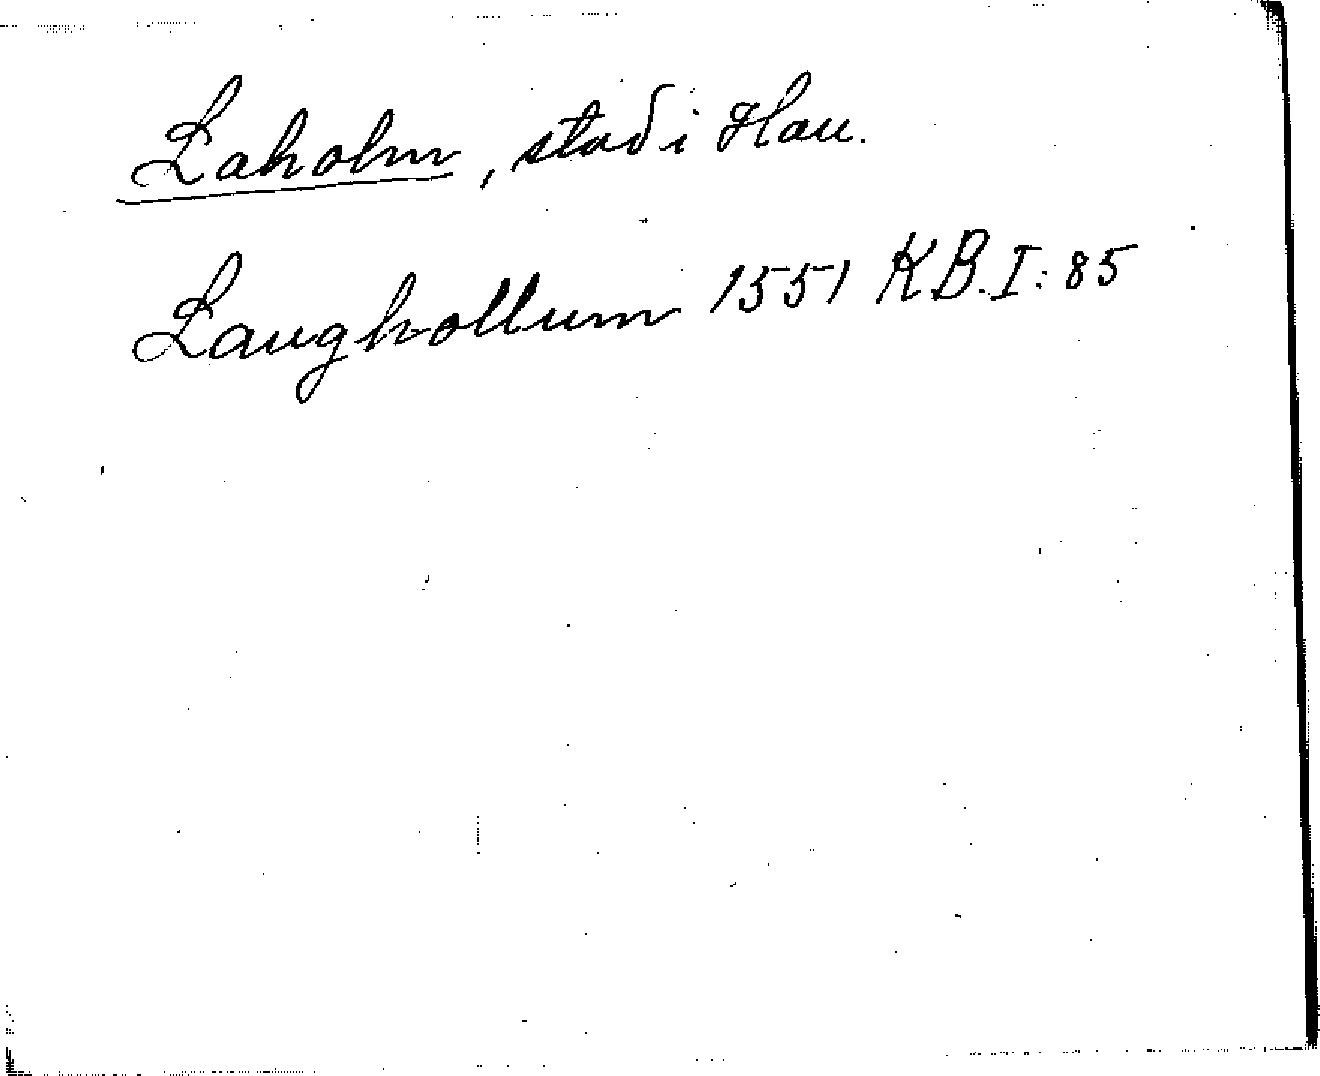 Laholm, stad i Hall.
Laughollum 1551 KB.I:85